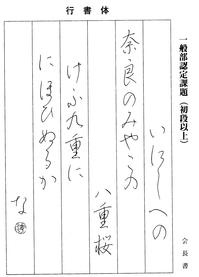 行書体
一般部認定課題(初段以上)
いにしへの
奈良のみやこの
八重桜
けふ九重に
にほひぬるか
な
会長書